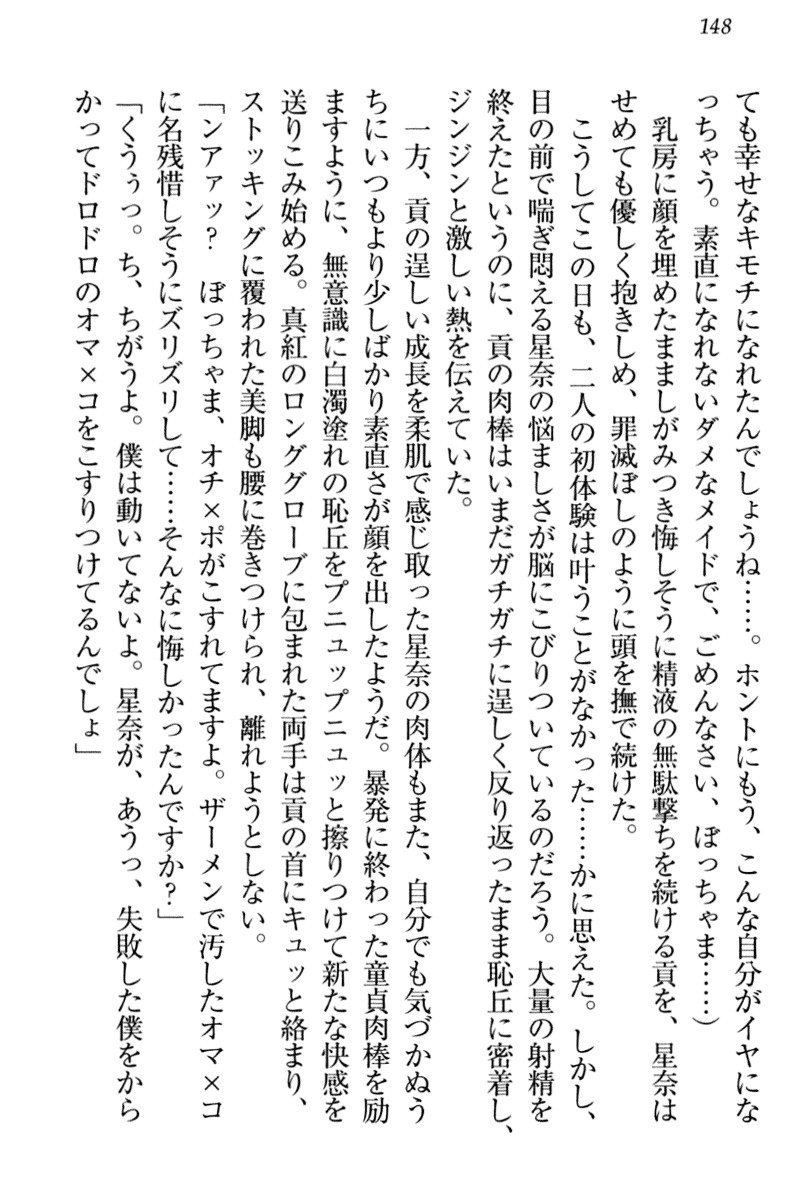 148
ても幸せなキモチになれたんでしょうね……。ホントにもう、こんな自分がイヤにな
っちゃう。素直になれないダメなメイドで、ごめんなさい、ぼっちゃま……)
乳房に顔を埋めたまましがみつき悔しそうに精液の無駄撃ちを続ける貢を、星奈は
せめても優しく抱きしめ、罪滅ぼしのように頭を撫で続けた。
こうしてこの日も、二人の初体験は叶うことがなかった……かに思えた。しかし、
目の前で喘ぎ悶える星奈の悩ましさが脳にこびりついているのだろう。大量の射精を
終えたというのに、貢の肉棒はいまだガチガチに逞しく反り返ったまま恥丘に密着し、
ジンジンと激しい熱を伝えていた。
一方、貢の逞しい成長を柔肌で感じ取った星奈の肉体もまた、自分でも気づかぬう
ちにいつもより少しばかり素直さが顔を出したようだ。暴発に終わった童貞肉棒を励
ますように、無意識に白濁塗れの恥丘をプニュップニュッと擦りつけて新たな快感を
送りこみ始める。真紅のロンググローブに包まれた両手は貢の首にキュッと絡まり、
ストッキングに覆われた美脚も腰に巻きつけられ、離れようとしない。
「ンアァッ?　ぼっちゃま、オチ×ポがこすれてますよ。ザーメンで汚したオマ×コ
に名残惜しそうにズリズリして……そんなに悔しかったんですか?」
「くうぅっ。ち、ちがうよ。僕は動いてないよ。星奈が、あうっ、失敗した僕をから
かってドロドロのオマ×コをこすりつけてるんでしょ」